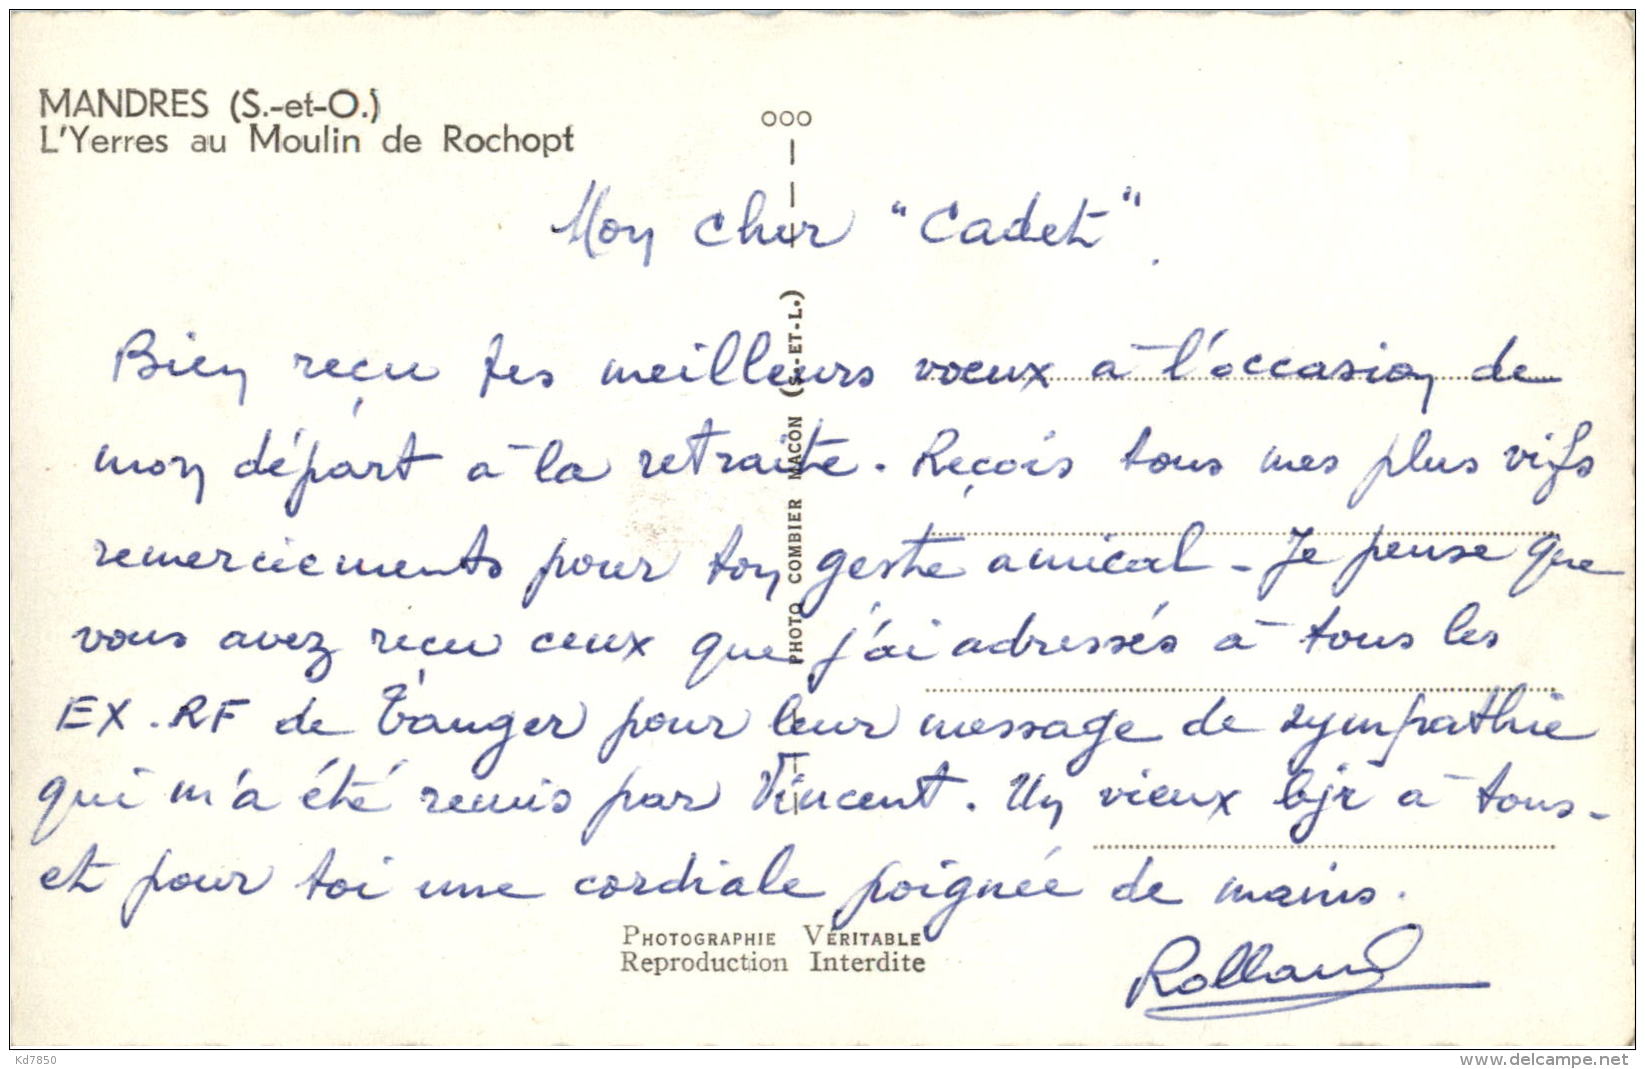 MANDRES (S.-et-O.)
L'Yerres au Moulin de Rochopt
Mon cher "Cadet".
Bien reçu tes meilleurs voeux à l'occasion de
mon départ à la retraite. Reçois tous mes plus vifs
remerciements pour ton geste amical - Je pense que
vous avez reçu ceux que j'ai adressés à tous les
EX.RF de Tanger pour leur message de sympathie
qui m'a été remis par Vincent. Un vieux bjr à tous -
et pour toi une cordiale poignée de mains.
Rolland
PHOTO COMBIER MACON (S.-ET-L.)
PHOTOGRAPHIE VÉRITABLE
Reproduction Interdite
Kd7850
www.delcampe.net